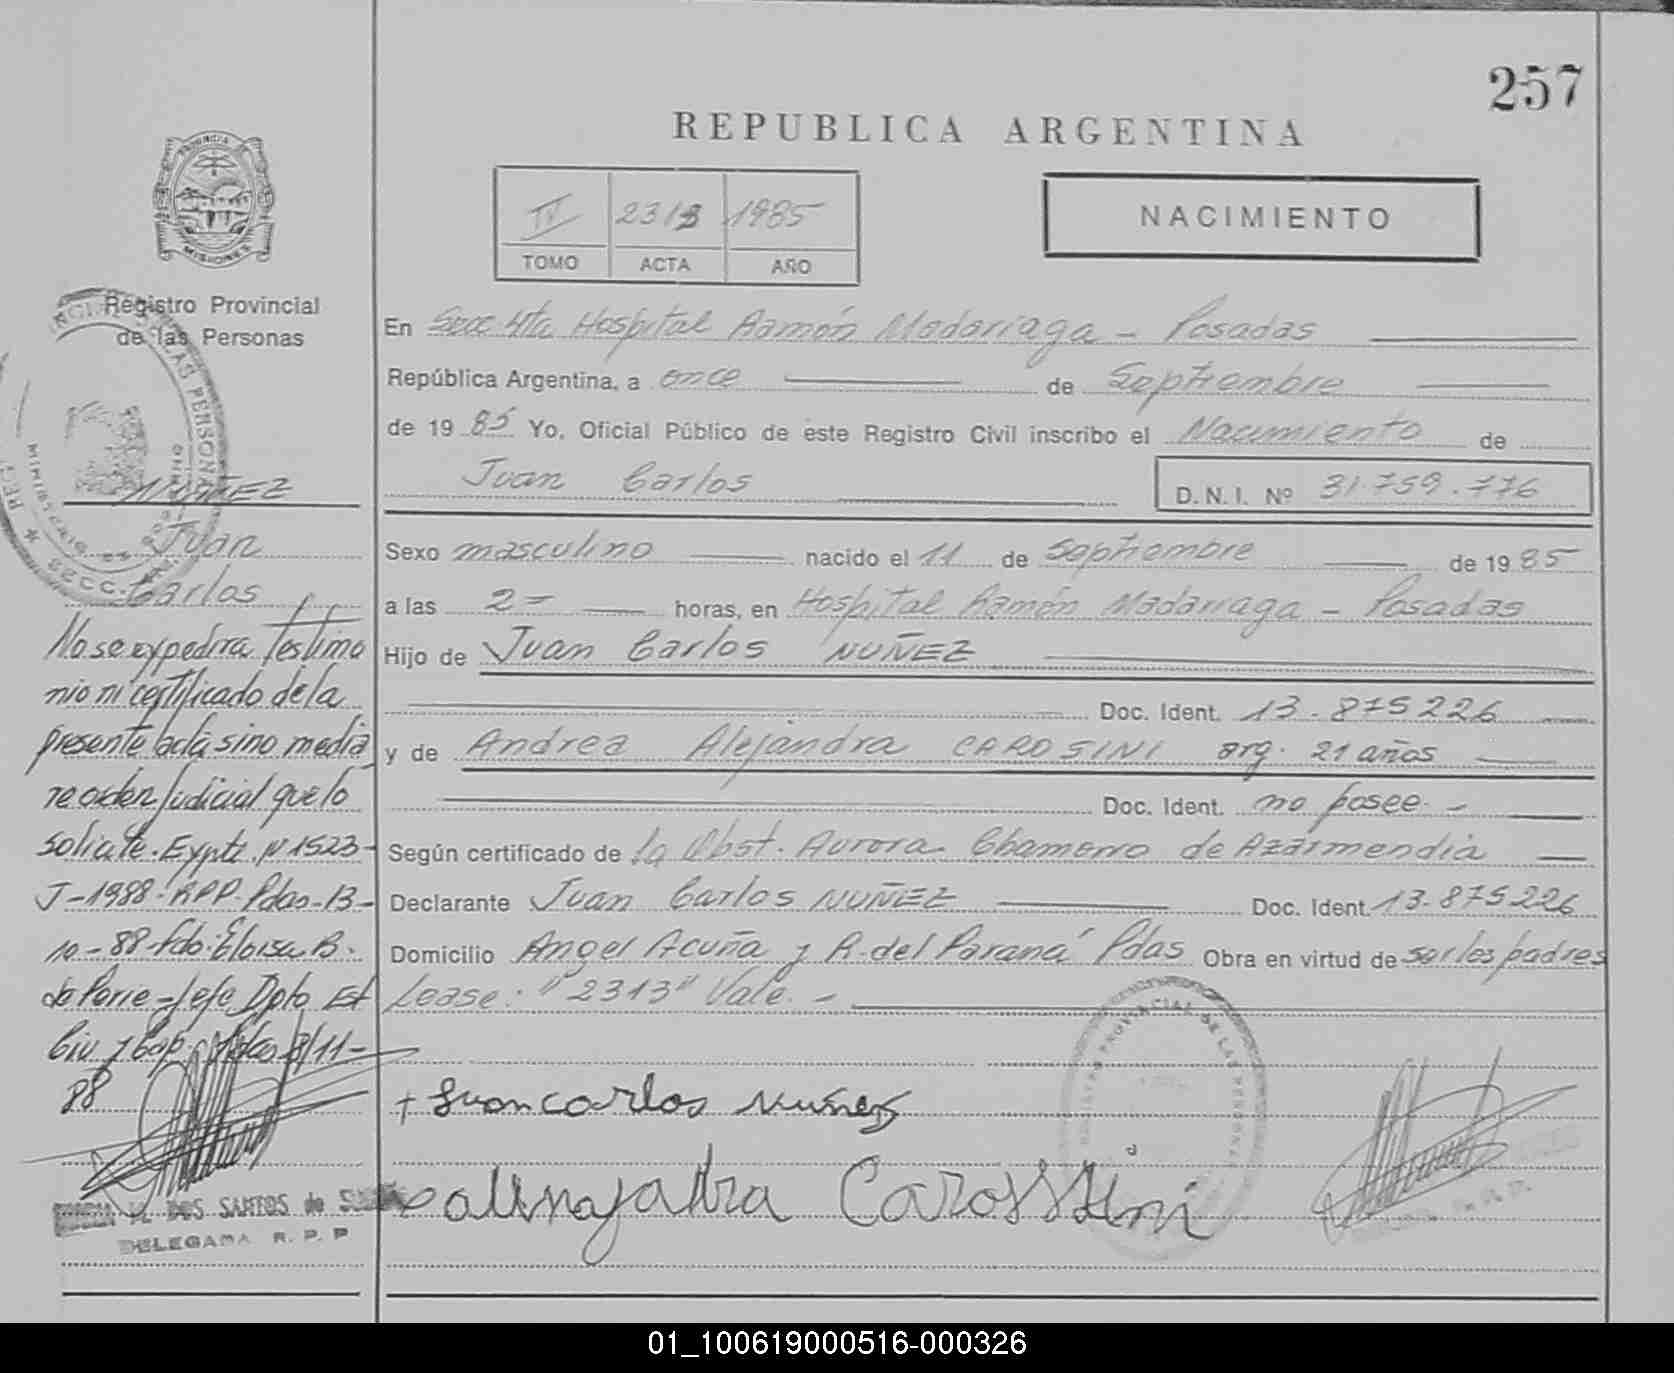 257
REPUBLICA ARGENTINA
IV 2313 1985
TOMO ACTA AÑO
NACIMIENTO
PROVINCIA
MISIONES
Registro Provincial
de las Personas
NUÑEZ
Juan
Carlos
No se expedira testimo
nio ni certificado de la
presente acta sino media
re orden judicial que lo
solicite. Expte. Nº 1523-
J-1988-RPP-Pdas-13-
10-88-fdo. Eloisa B.
de - Jefe Dpto Est
Civ y Cap. Pdas 8/11-
88
DOS SANTOS de
DELEGADA R. P. P
En Secc 4ta Hospital Ramón Madariaga - Posadas
República Argentina, a once de Septiembre
de 1985 Yo, Oficial Público de este Registro Civil inscribo el Nacimiento de
Juan Carlos D.N.I. Nº 31.759.776
Sexo masculino nacido el 11 de septiembre de 1985
a las 2- horas, en Hospital Ramón Madariaga - Posadas
Hijo de Juan Carlos NUÑEZ
Doc. Ident. 13.875226
y de Andrea Alejandra CAROSINI arg. 21 años
Doc. Ident. no posee. -
Según certificado de la Obst. Aurora Chamorro de Azarmendia
Declarante Juan Carlos NUÑEZ Doc. Ident. 13.875226
Domicilio Angel Acuña y R. del Paraná Pdas Obra en virtud de ser los padres
Lease: "2313" Vale. -
+ Juan carlos Nuñez
Carossini
01_100619000516-000326